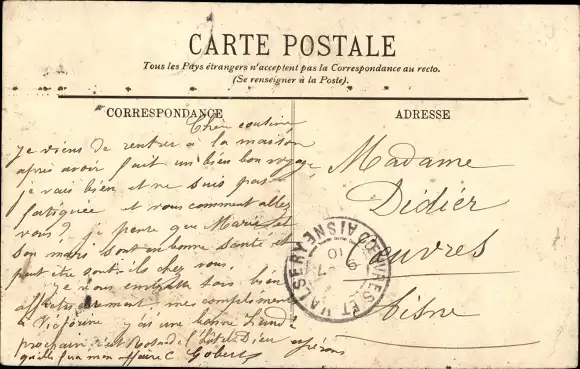 CARTE POSTALE
Tous les Pays étrangers n'acceptent pas la Correspondance au recto.
(Se renseigner à la Poste).
CORRESPONDANCE
Chère cousine
je viens de rentrer à la maison
après avoir fait un bien bon voyage
je vais bien et ne suis pas
fatiguée et vous comment allez
vous? je pense que Marie et
son mari sont en bonne santé et
peut être sont ils chez vous.
je vous embrasse bien
affectueusement mes compliments
à Victorine une bonne
prochain l'hôtel Dieu espérons
mon affaire Gobert
ADRESSE
Madame
Didier
Oeuvres
Aisne
OEUVRES ET VALSERY
AISNE
10